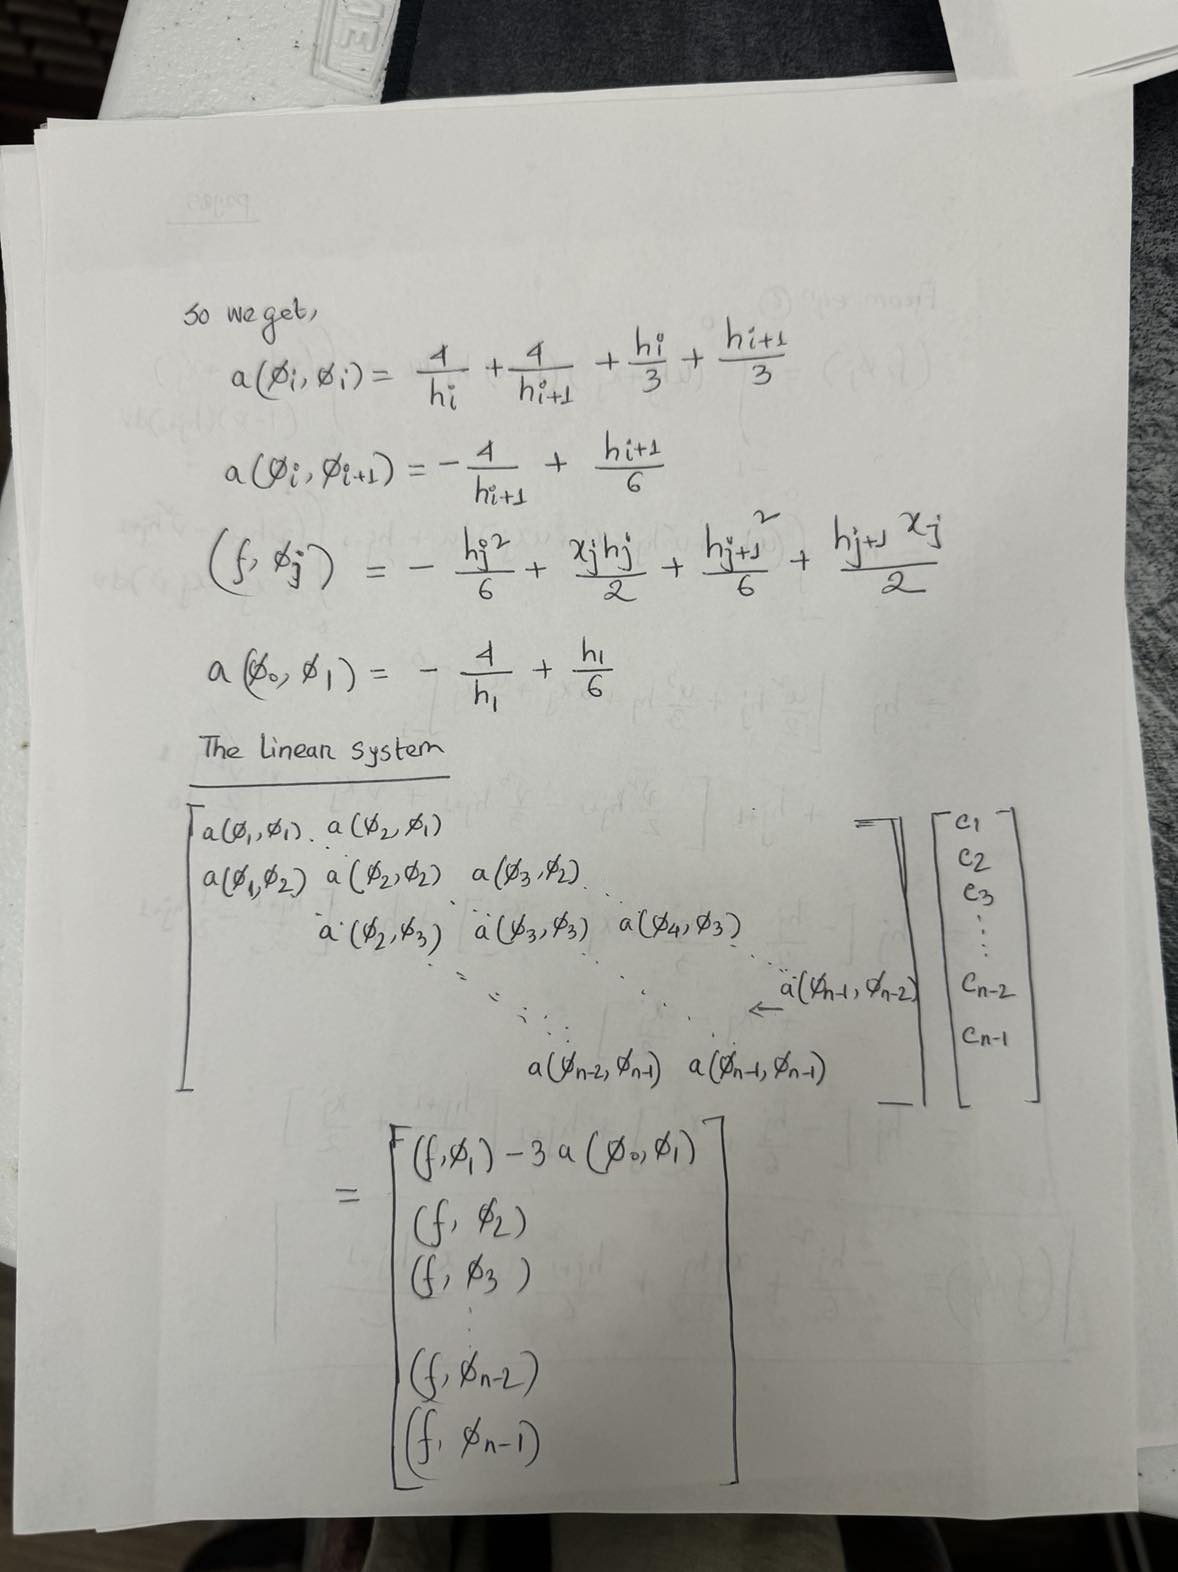 So we get,
a(φi, φi) = 4/hi + 4/hi+1 + hi/3 + hi+1/3
a(φi, φi+1) = - 4/hi+1 + hi+1/6
(f, φj) = - hj²/6 + xjhj/2 + hj+1²/6 + hj+1 xj/2
a(φ0, φ1) = - 4/h1 + h1/6
The Linear System
[a(φ1,φ1) a(φ2,φ1)
a(φ1,φ2) a(φ2,φ2) a(φ3,φ2)
a(φ2,φ3) a(φ3,φ3) a(φ4,φ3)
← a(φn-1,φn-2)
a(φn-2,φn-1) a(φn-1,φn-1)]
[c1
c2
c3
⋮
cn-2
cn-1]
= [(f,φ1) - 3a(φ0,φ1)
(f, φ2)
(f, φ3)
⋮
(f, φn-2)
(f, φn-1)]